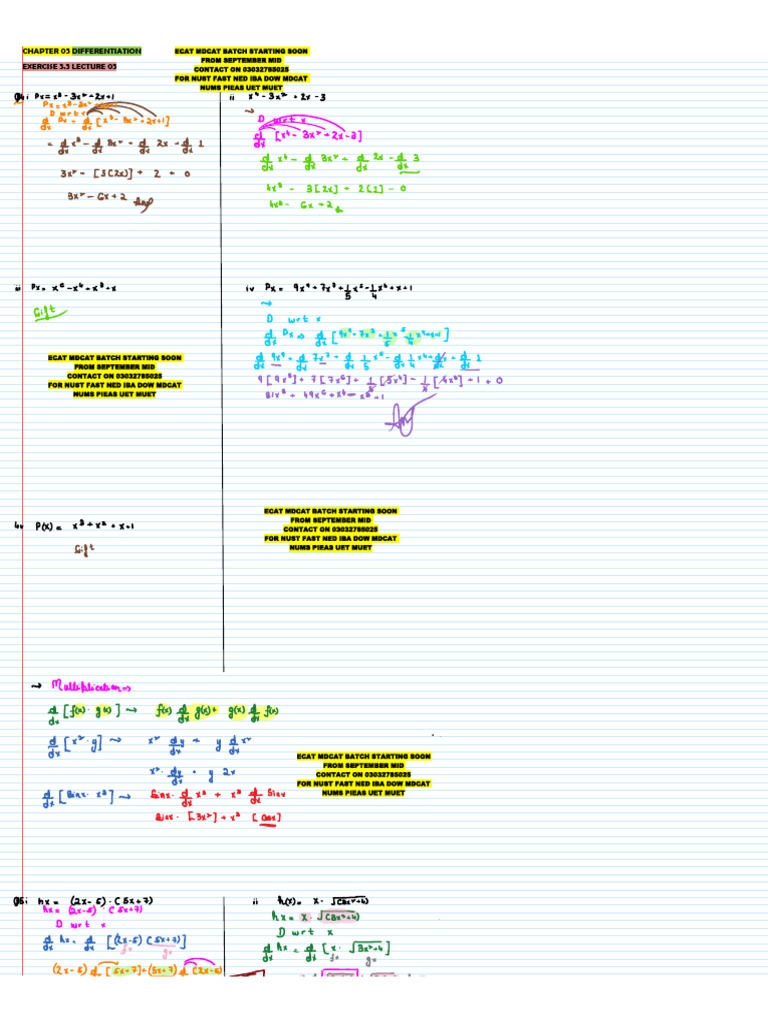 CHAPTER 03 DIFFERENTIATION
EXERCISE 3.3 LECTURE 03
ECAT MDCAT BATCH STARTING SOON
FROM SEPTEMBER MID
CONTACT ON 03032785025
FOR NUST FAST NED IBA DOW MDCAT
NUMS PIEAS UET MUET
Q4 i Px = x³ - 3x² + 2x + 1
Px = x³ - 3x²
D wrt x
d/dx Px = d/dx [x³ - 3x² + 2x + 1]
= d/dx x³ - d/dx 3x² + d/dx 2x + d/dx 1
3x² - [3(2x)] + 2 + 0
3x² - 6x + 2 Ans
ii x⁴ - 3x² + 2x - 3
D wrt x
d/dx [x⁴ - 3x² + 2x - 3]
d/dx x⁴ - d/dx 3x² + d/dx 2x - d/dx 3
4x³ - 3[2x] + 2[1] - 0
4x³ - 6x + 2
iii Px = x⁶ - x⁴ + x³ + x
Gift
ECAT MDCAT BATCH STARTING SOON
FROM SEPTEMBER MID
CONTACT ON 03032785025
FOR NUST FAST NED IBA DOW MDCAT
NUMS PIEAS UET MUET
iv Px = 9x⁹ + 7x⁷ + 1/5 x⁵ - 1/4 x⁴ + x + 1
→
D wrt x
d/dx Px ⇒ d/dx [9x⁹ + 7x⁷ + 1/5 x⁵ - 1/4 x⁴ + x + 1]
d/dx 9x⁹ + d/dx 7x⁷ + d/dx 1/5 x⁵ - d/dx 1/4 x⁴ + d/dx x + d/dx 1
9[9x⁸] + 7[7x⁶] + 1/5 [5x⁴] - 1/4 [4x³] + 1 + 0
81x⁸ + 49x⁶ + x⁴ - x³ + 1
Ans
ECAT MDCAT BATCH STARTING SOON
FROM SEPTEMBER MID
CONTACT ON 03032785025
FOR NUST FAST NED IBA DOW MDCAT
NUMS PIEAS UET MUET
P(x) = x³ + x² + x + 1
Gift
→ Multiplication ⇒
d/dx [f(x) · g(x)] → f(x) d/dx g(x) + g(x) d/dx f(x)
d/dx [x² · y] → x² d/dx y + y d/dx x²
x² · dy/dx + y 2x
d/dx [Sinx · x³] → Sinx · d/dx x³ + x³ d/dx Sinx
Sinx · [3x²] + x³ [Cosx]
ECAT MDCAT BATCH STARTING SOON
FROM SEPTEMBER MID
CONTACT ON 03032785025
FOR NUST FAST NED IBA DOW MDCAT
NUMS PIEAS UET MUET
Q5 i hx = (2x - 5) · (5x + 7)
hx = (2x - 5) · (5x + 7)
D wrt x
d/dx hx = d/dx [(2x - 5) (5x + 7)]
fx gx
(2x - 5) d/dx [5x + 7] + (5x + 7) d/dx (2x - 5)
ii h(x) = x · √(3x² + 4)
hx = x · √(3x² + 4)
D wrt x
d/dx hx = d/dx [x · √3x² + 4]
fx gx